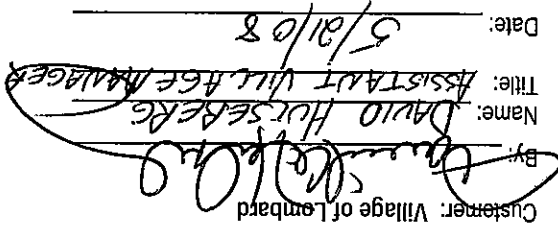 Customer: Village of Lombard
By:
Name: DAVID HULSEBERG
Title: ASSISTANT VILLAGE MANAGER
Date: 5/21/08